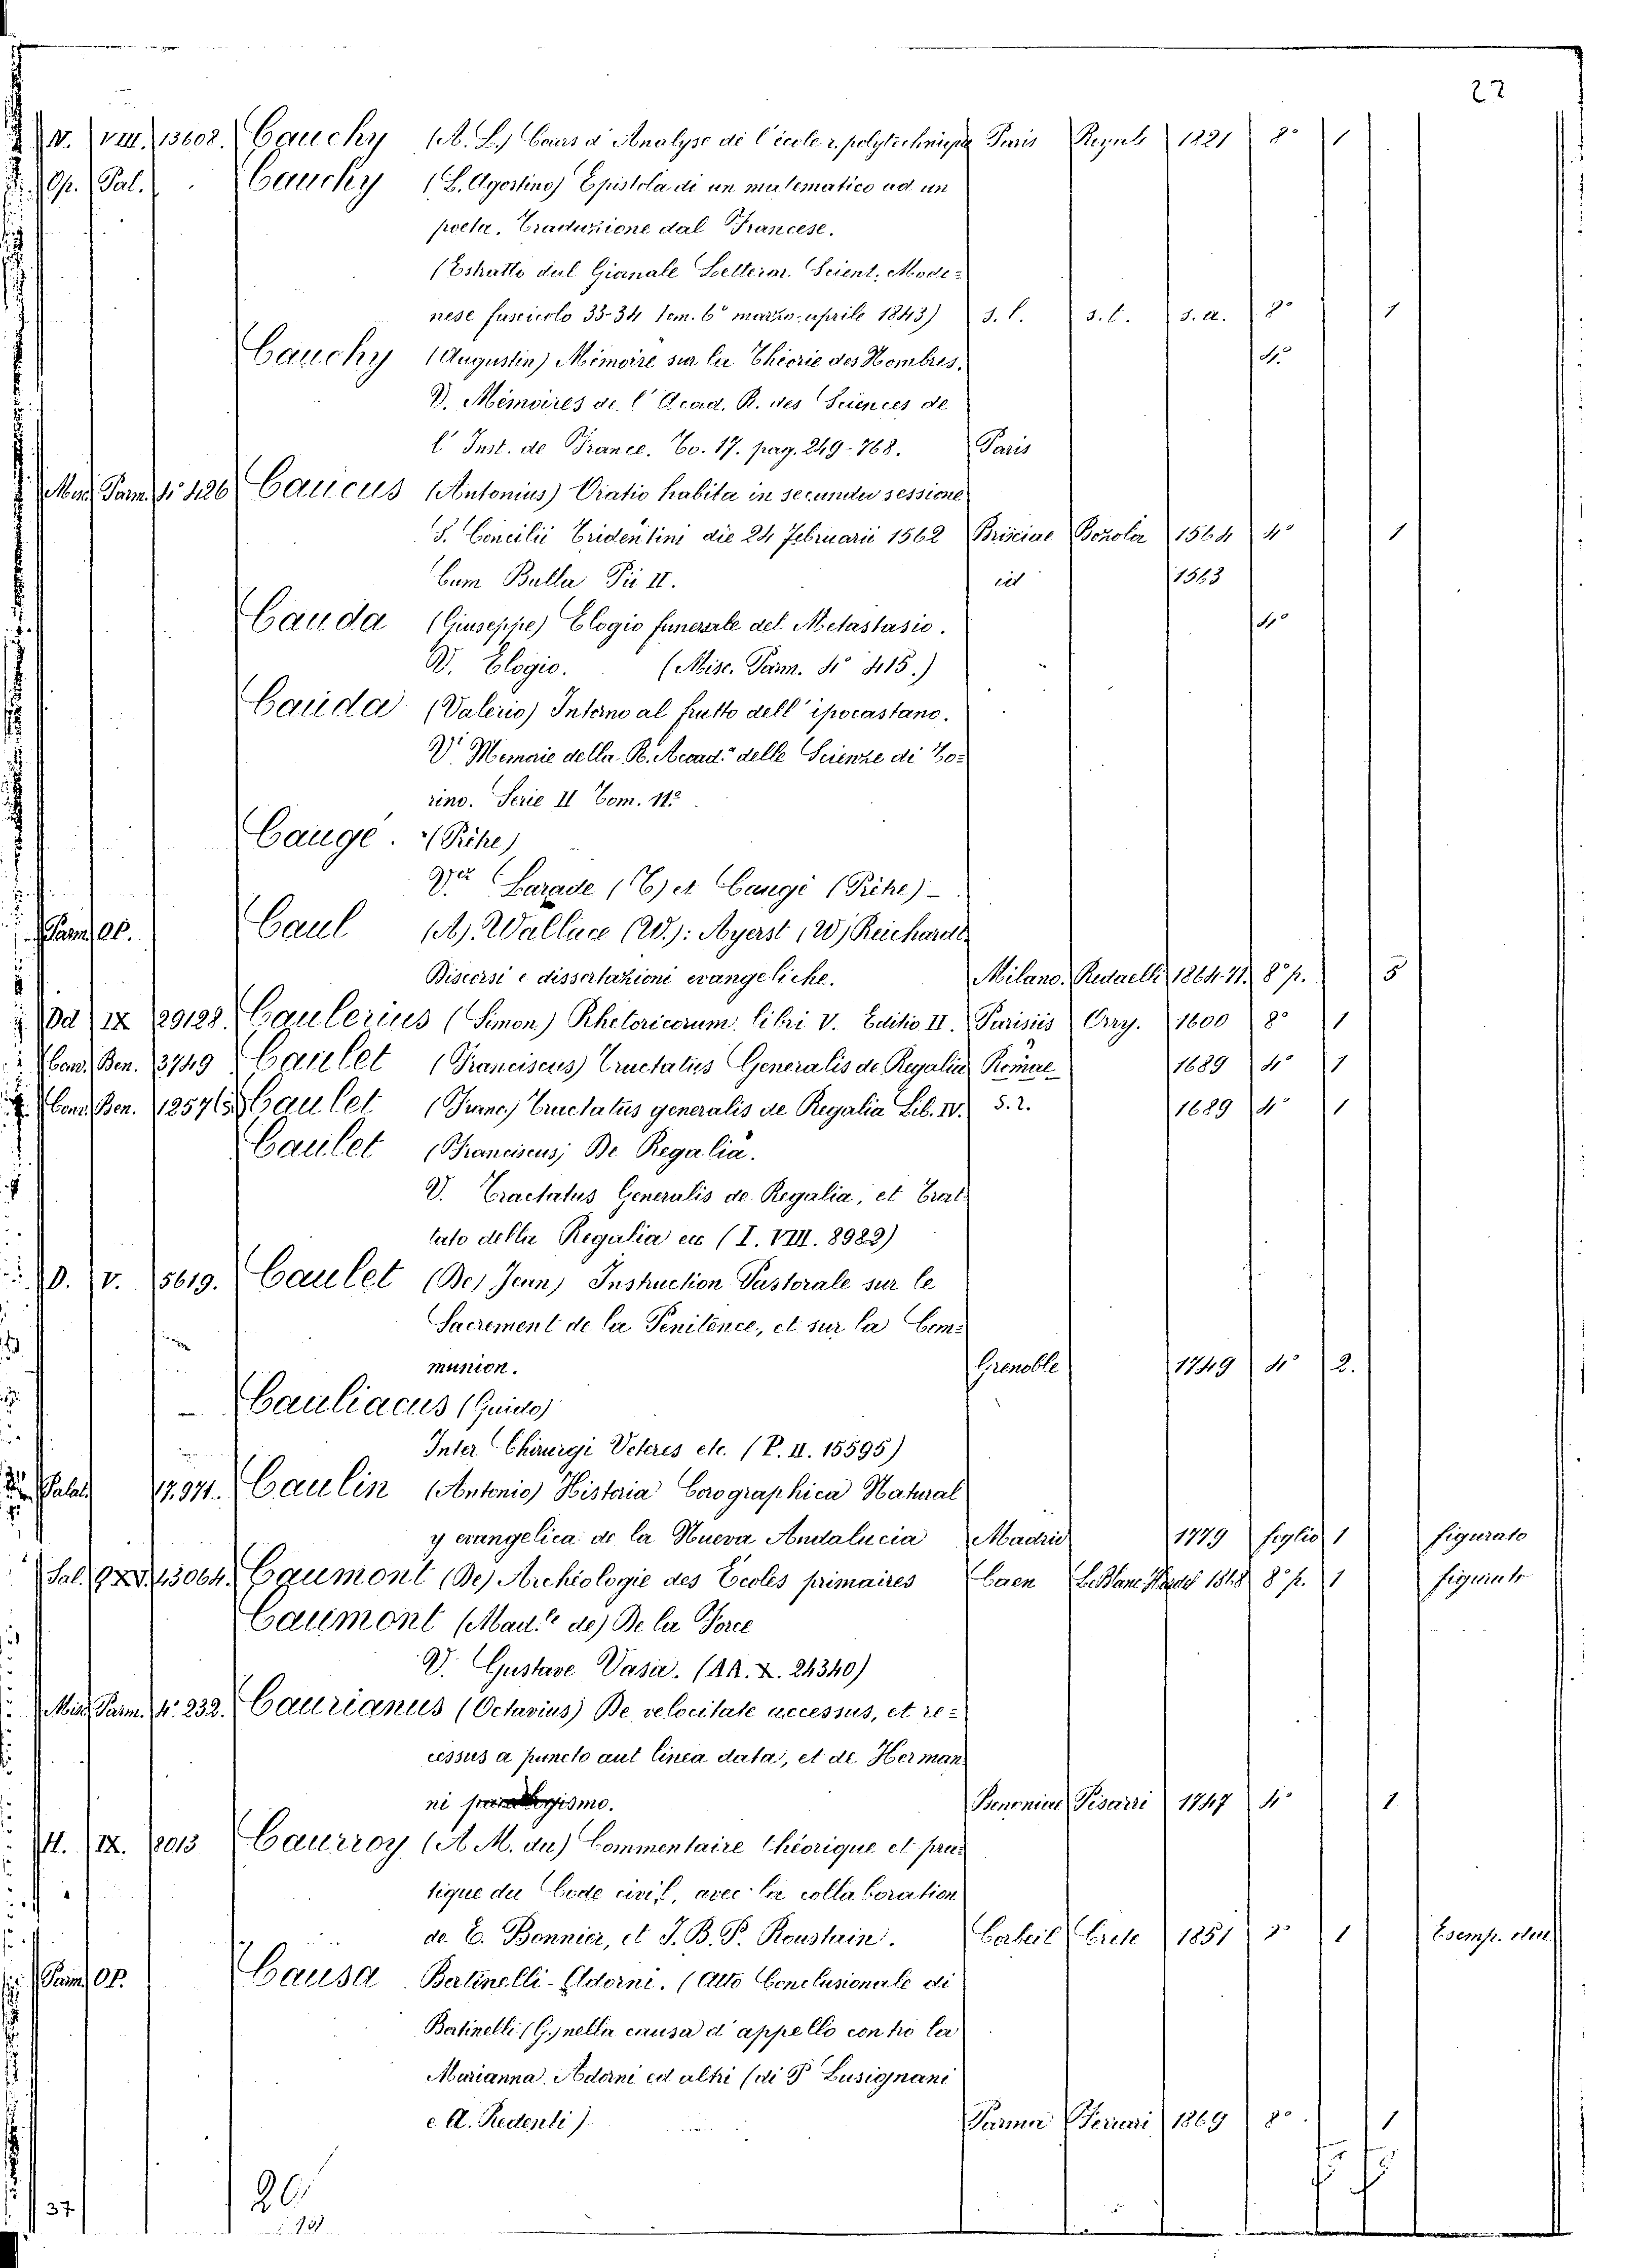 22
N. VIII. 13602. Cauchy (A. L.) Cours d'Analyse de l'école r. polytechnique Paris 1821 8° 1
Op. Pal. Cauchy (L. Agostino) Epistola di un matematico ad un
poeta. Traduzione dal Francese.
(Estratto dal Giornale Letterar. Scient. Mode=
nese fascicolo 33-34 tom. 6° marzo-aprile 1843) s. l. s. t. s. a. 8° 1
Cauchy (Augustin) Mémoire sur la Théorie des Nombres. 4°
V. Mémoires de l'Acad. R. des Sciences de
l'Inst. de France. To. 17. pag. 249-768. Paris
Parm. 4° 426 Caucus (Antonius) Oratio habita in secunda sessione
S. Concilii Tridentini die 24 Februarii 1562 Brixiae Bozola 1564 4° 1
Cum Bulla Pii II. id 1563
Cauda (Giuseppe) Elogio funerale del Metastasio. 4°
V. Elogio. (Misc. Parm. 4° 415.)
Cauda (Valerio) Intorno al frutto dell'ipocastano.
V. Memorie della R. Accad.a delle Scienze di To=
rino. Serie II Tom. 11°
Caugé. (Pithe)
V.a Larade (C) et Caugé (Pithe) -
Parm. OP. Caul (A). Wallace (W.): Ayerst (W)
Discorsi e dissertazioni evangeliche. Milano. Redaelli 1864-71. 8° p. 5
Dd IX 29128. Caulerius (Simon) Rhetoricorum libri V. Editio II. Parisiis Orry. 1600 8° 1
Ben. 13749 Caulet (Franciscus) Tractatus Generalis de Regalia Romae 1689 4° 1
Ben. Caulet (Franc) Tractatus generalis de Regalia Lib. IV. 1689 4° 1
Caulet (Franciscus) De Regalia.
V. Tractatus Generalis de Regalia, et Trat=
tato della Regalia ec (I. VIII. 8982)
D. V. 5619. Caulet (De) Jean) Instruction Pastorale sur le
Sacrement de la Penitence, et sur la Com=
munion. Grenoble 1749 4° 2.
- Cauliacus (Guido)
Inter Chirurgi Veteres etc. (P. II. 15595)
Palat. 17.971. Caulin (Antonio) Historia Corographica Natural
y evangelica de la Nueva Andalucia Madrid 1779 foglio 1 figurato
Sal. 43064. Caumont (De) Archéologie des Écoles primaires Caen 1868 8° p. 1 figurato
Caumont (Mad.lle de) De la Force
V. Gustave Vasa. (AA. X. 24340)
Misc. Parm. 4° 232. Caurianus (Octavius) De velocitate accessus, et re=
cessus a puncto aut linea data, et de Herman=
ni paralogismo. Bononiae Pisarri 1747 4° 1
H. IX. 8013 Caurroy (A. M. du) Commentaire théorique et pra=
tique du Code civil, avec la collaboration
de E. Bonnier, et J. B. P. Roustain. Corbeil Crete 1851 8° 1
Parm. OP. Causa Bertinelli-Adorni. (Atto Conclusionale di
Bertinelli (G.) nella causa d'appello contro la
Marianna Adorni ed altri (di P Lusignani
e A. Redenti) Parma Ferrari 1869 8° 1
20
37